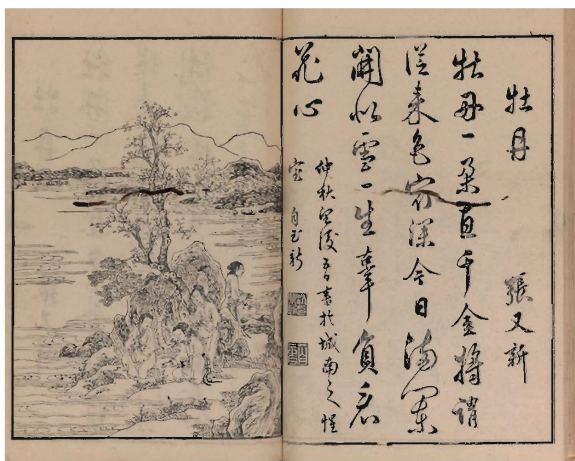 牡丹
張又新
牡丹一朵直千金將謂
從來色最深今日滿闌
開似雪一生辜負看
花心
仲秋望後 書於城南之惺
室